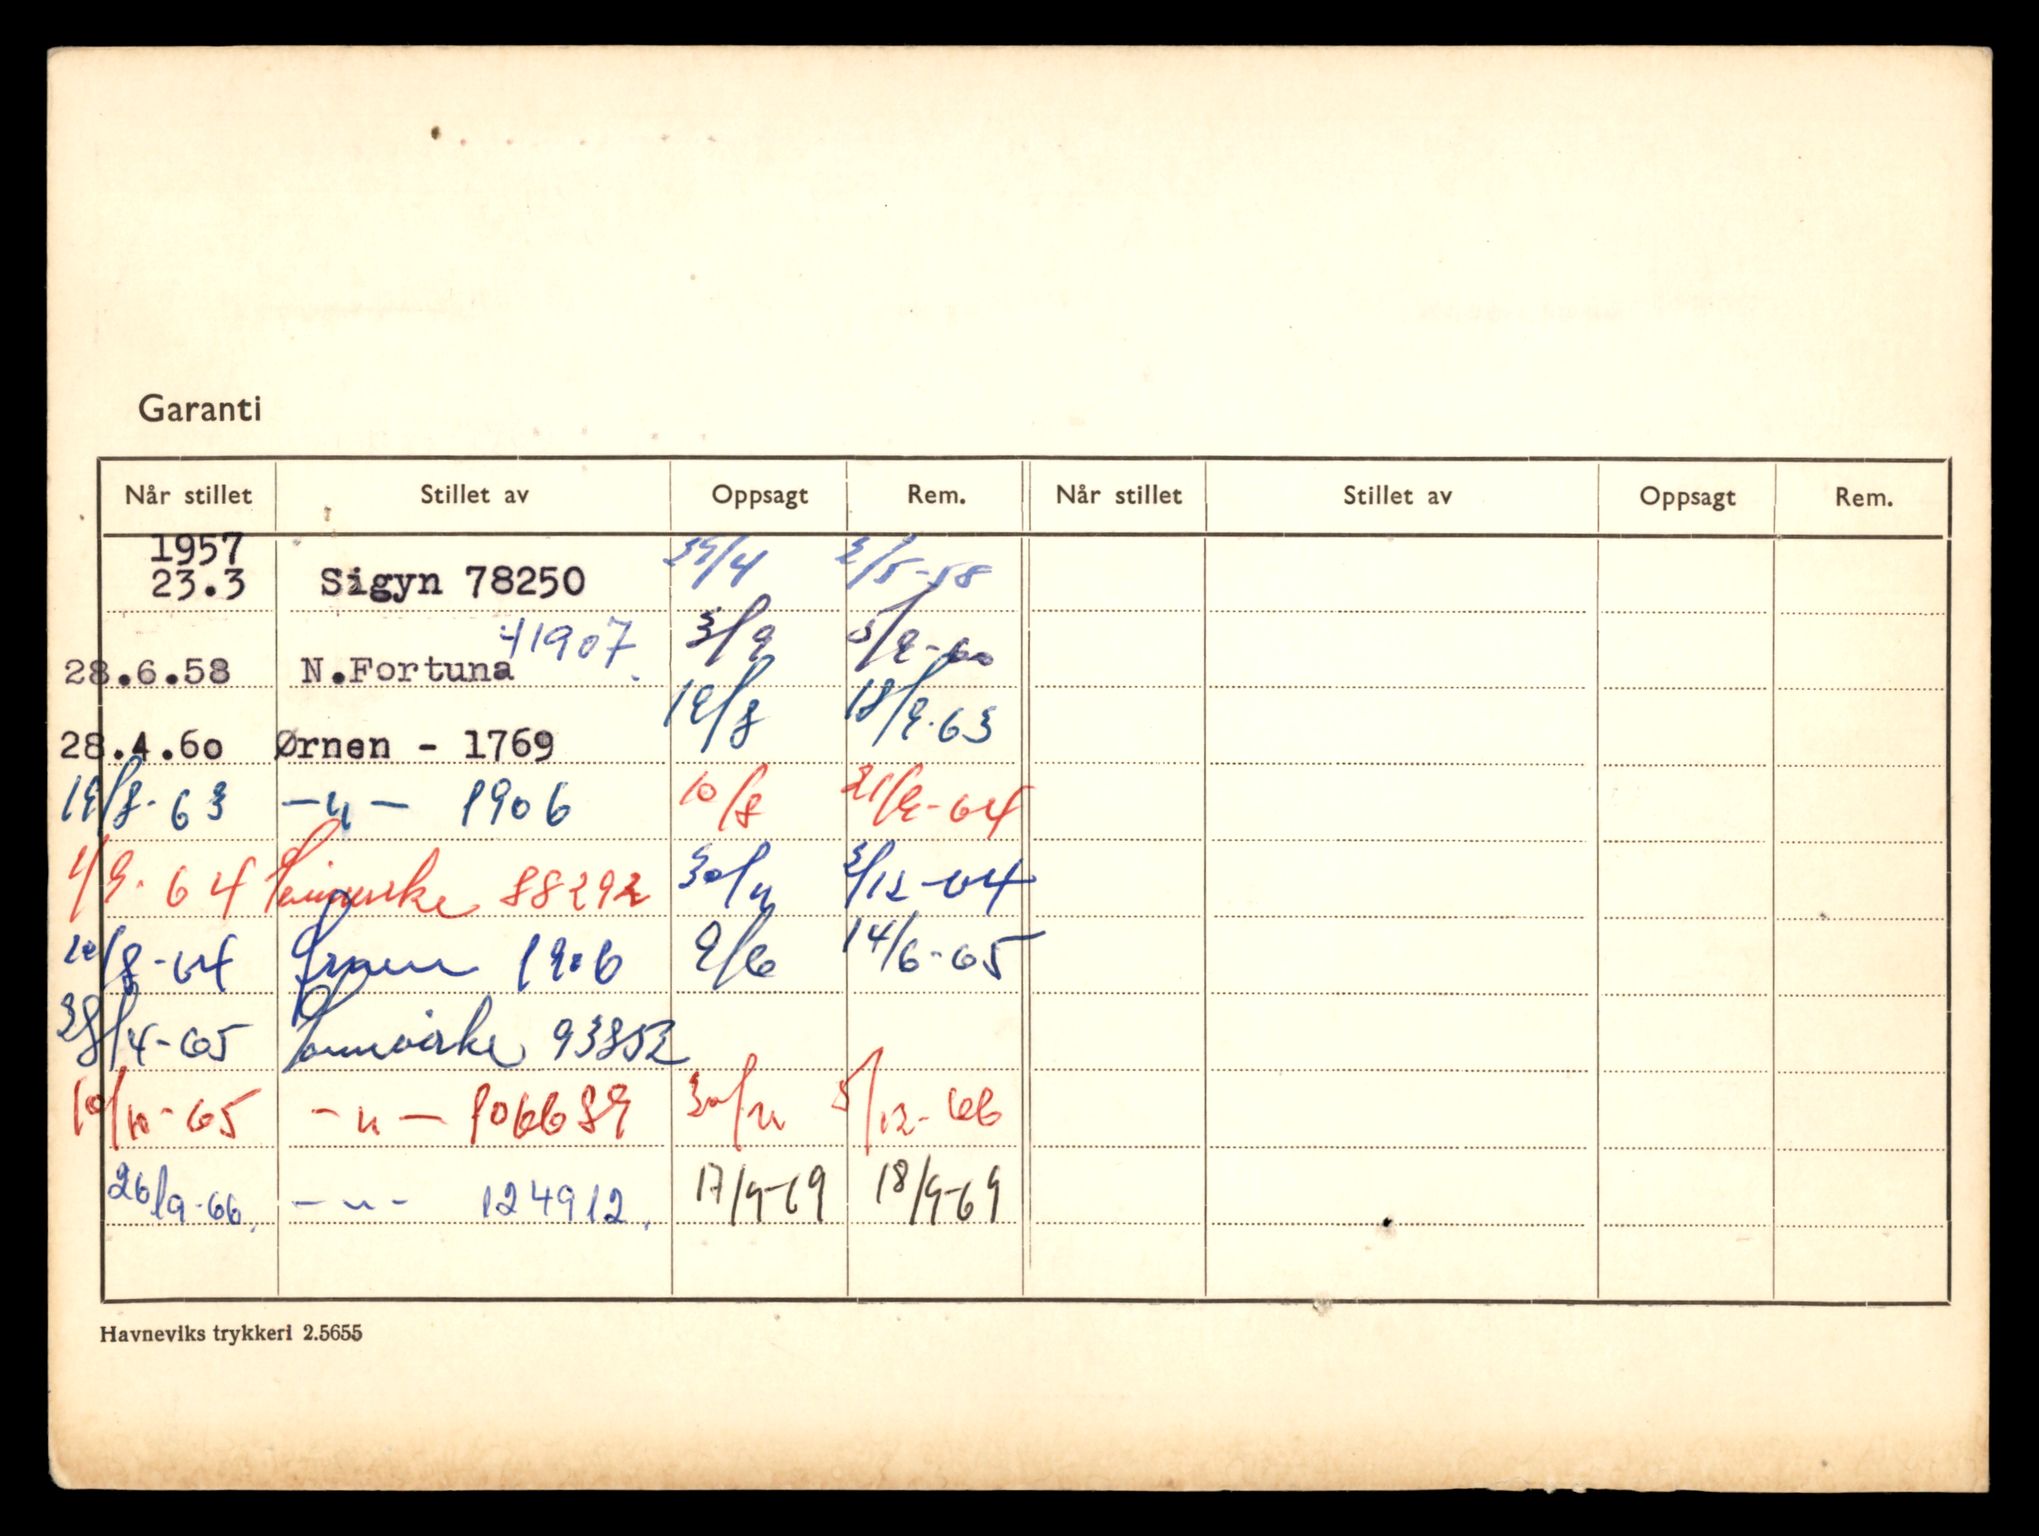 Garanti
Når stillet Stillet av Oppsagt Rem. Når stillet Stillet av Oppsagt Rem.
1957
23.3 Sigyn 78250 /4 2/5-58
41907 3/9 5/9-60
28.6.58 N.Fortuna
28.4.60 Ørnen - 1769 19/8 18/9-63
19/8-63 -"- 1906 10/8 21/9-64
1/9-64 Samvirke 88292 30/11 3/12-64
20/8-64 Ørnen 1906 9/6 14/6-65
28/4-65 Samvirke 93852
10/10-65 -"- 106689 30/11 5/12-66
26/9-66. -"- 124912. 17/9-69 18/9-69
Havneviks trykkeri 2.5655